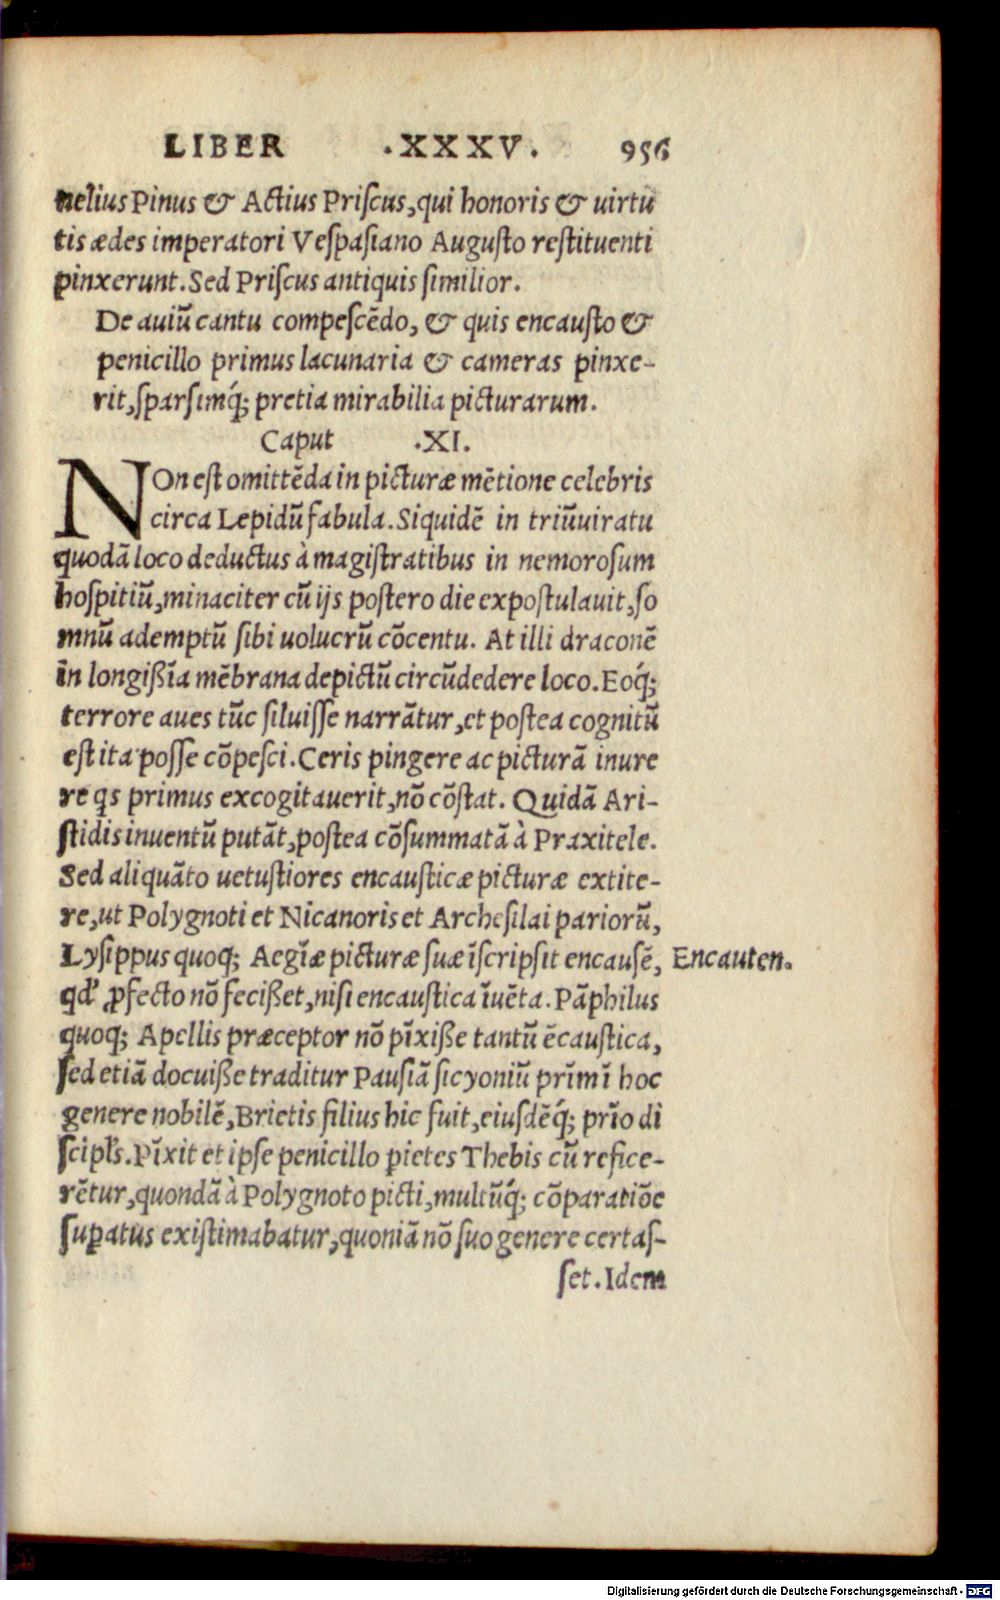 LIBER .XXXV. 956
nelius Pinus & Actius Priſcus, qui honoris & uirtu
tis ædes imperatori Veſpaſiano Auguſto reſtituenti
pinxerunt. Sed Priſcus antiquis ſimilior.
De auiũ cantu compeſcẽdo, & quis encauſto &
penicillo primus lacunaria & cameras pinxe-
rit, ſparſimq́; pretia mirabilia picturarum.
Caput .XI.
NOn eſt omittẽda in picturæ mẽtione celebris
circa Lepidũ fabula. Siquidẽ in triũuiratu
quodã loco deductus à magiſtratibus in nemoroſum
hoſpitiũ, minaciter cũ ijs poſtero die expoſtulauit, ſo
mnũ ademptũ ſibi uolucrũ cõcentu. At illi draconẽ
in longißĩa mẽbrana depictũ circũdedere loco. Eoq́;
terrore aues tũc ſiluiſſe narrãtur, et poſtea cognitũ
eſt ita poſſe cõpeſci. Ceris pingere ac picturã inure
re qs primus excogitauerit, nõ cõſtat. Quidã Ari-
ſtidis inuentũ putãt, poſtea cõſummatã à Praxitele.
Sed aliquãto uetuſtiores encauſticæ picturæ extite-
re, ut Polygnoti et Nicanoris et Archeſilai pariorũ,
Lyſippus quoq; Aegĩæ picturæ ſuæ ĩſcripſit encauſẽ,
Encauten.
qd' ꝓfecto nõ fecißet, niſi encauſtica ĩuẽta. Pãphilus
quoq; Apellis præceptor nõ pĩxiße tantũ ẽcauſtica,
ſed etiã docuiße traditur Pauſiã ſicyoniũ prĩmĩ hoc
genere nobilẽ, Brietis filius hic fuit, eiuſdẽq́; prĩo di
ſcipl's. Pĩxit et ipſe penicillo pietes Thebis cũ refice-
rẽtur, quondã à Polygnoto picti, multũq́; cõparatiõe
ſuꝑatus exiſtimabatur, quoniã nõ ſuo genere certaſ-
ſet. Idem
Digitalisierung gefördert durch die Deutsche Forschungsgemeinschaft - DFG